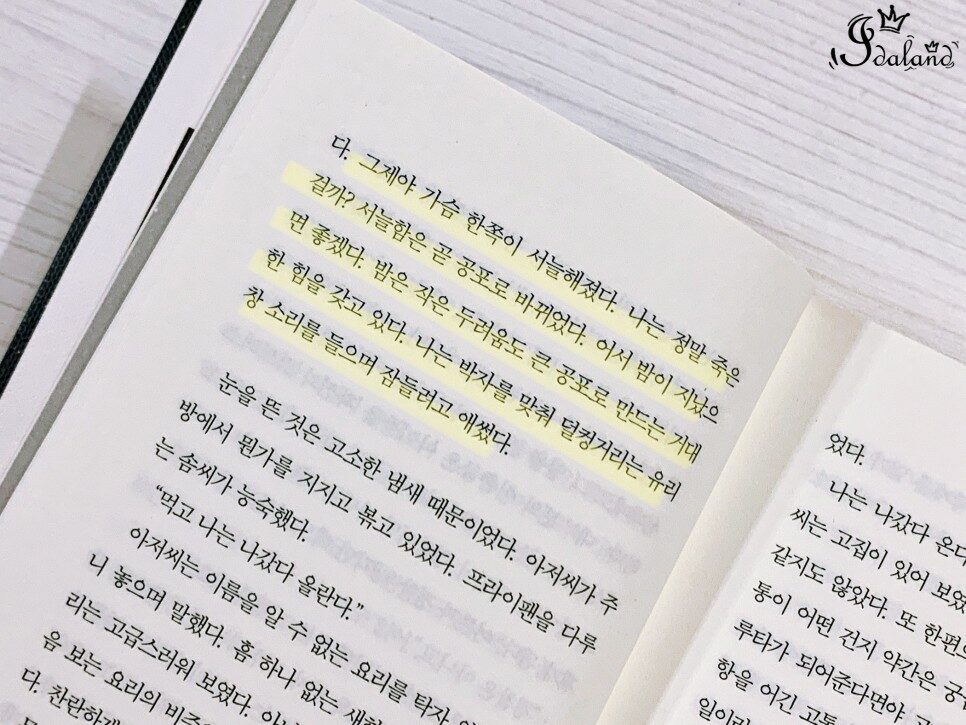 Idaland
다. 그제야 가슴 한쪽이 서늘해졌다. 나는 정말 죽은
걸까? 서늘함은 곧 공포로 바뀌었다. 어서 밤이 지났으
면 좋겠다. 밤은 작은 두려움도 큰 공포로 만드는 거대
한 힘을 갖고 있다. 나는 박자를 맞춰 덜컹거리는 유리
창 소리를 들으며 잠들려고 애썼다.
눈을 뜬 것은 고소한 냄새 때문이었다. 아저씨가 주
방에서 뭔가를 지지고 볶고 있었다. 프라이팬을 다루
는 솜씨가 능숙했다.
“먹고 나는 나갔다 올란다.”
아저씨는 이름을 알 수 없는 요리를 탁자
니 놓으며 말했다. 흠 하나 없는
리는 고급스러워 보였다.
음 보는 요리의
다. 찬란하게
었다.
나는 나갔다 온다
씨는 고집이 있어 보였
같지도 않았다. 또 한편
통이 어떤 건지 약간은
루타가 되어준다면야
항을 어긴